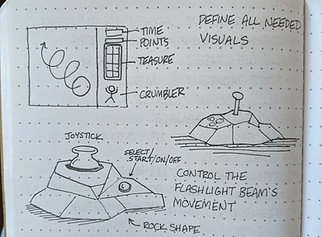 TIME
POINTS
TEASURE
CRUMBLER
DEFINE ALL NEEDED
VISUALS
JOYSTICK
SELECT/
START/ON/OFF
CONTROL THE
FLASHLIGHT BEAM'S
MOVEMENT
ROCK SHAPE